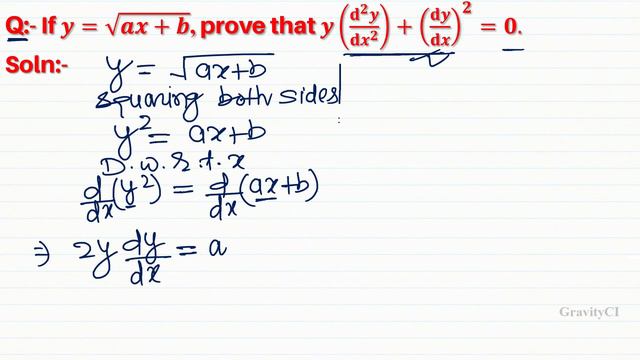 Q:- If y = √(ax + b), prove that y (d²y/dx²) + (dy/dx)² = 0.
Soln:- y = √(ax+b)
squaring both sides
y² = ax+b
D.w.r.t.x
d/dx (y²) = d/dx (ax+b)
⇒ 2y dy/dx = a
GravityCI